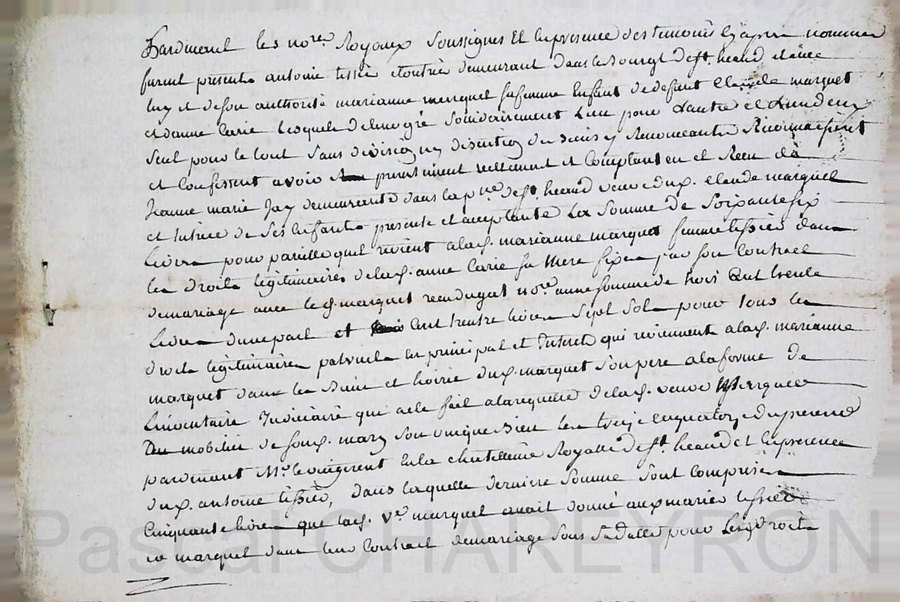 Pardevant les nores Royaux soussignes Et en presence des temoins cy apres nommes
furent presents antoine tissier demeurant dans le bourg de st heand, et de
luy et de son authorité marianne marquet sa femme Enfant de defunt Claude marquet
et danne Carie Lesquels de leur gré solidairement L'un pour L'autre et L'un d'eux
seul pour le tout sans division ny discution de biens y Renonceants Reconnaissent
et Confessent avoir presentement reellement et Comptant eu et Receu de
Jeanne marie Jay demeurante dans la pse de st heand veuve du s. Claude marquet
et tutrice de ses Enfants presente et acceptante La somme de soixante six
Livres pour pareille que revient a la s. marianne marquet femme tissier dans
les droits légitimaires de la s. anne Carie sa mere fixes par son Contract
de mariage avec le s. marquet recu nore a une somme de trois Cent trente
Livres d'une part et Cent trente livres sept sols pour tous les
droits légitimaires paternels en principal et Interets qui reviennent a la s. marianne
marquet dans les Biens et hoirie du s. marquet son pere a la forme de
L'inventaire Judiciaire qui a ete fait a la requette de la s. veuve Marquet
Du mobilier de son s. mary son unique Bien les treize et quatorze du present
pardevant Mr le en la chatellenie Royalle de st. heand et En presence
du s. antoine tissier, dans laquelle derniere somme sont comprises
Cinquante livres que la s. ve marquet avait donné aux maries tissier
et marquet dans leur Contract de mariage sous sa dalle pour les droits
Pascal CHAREYRON